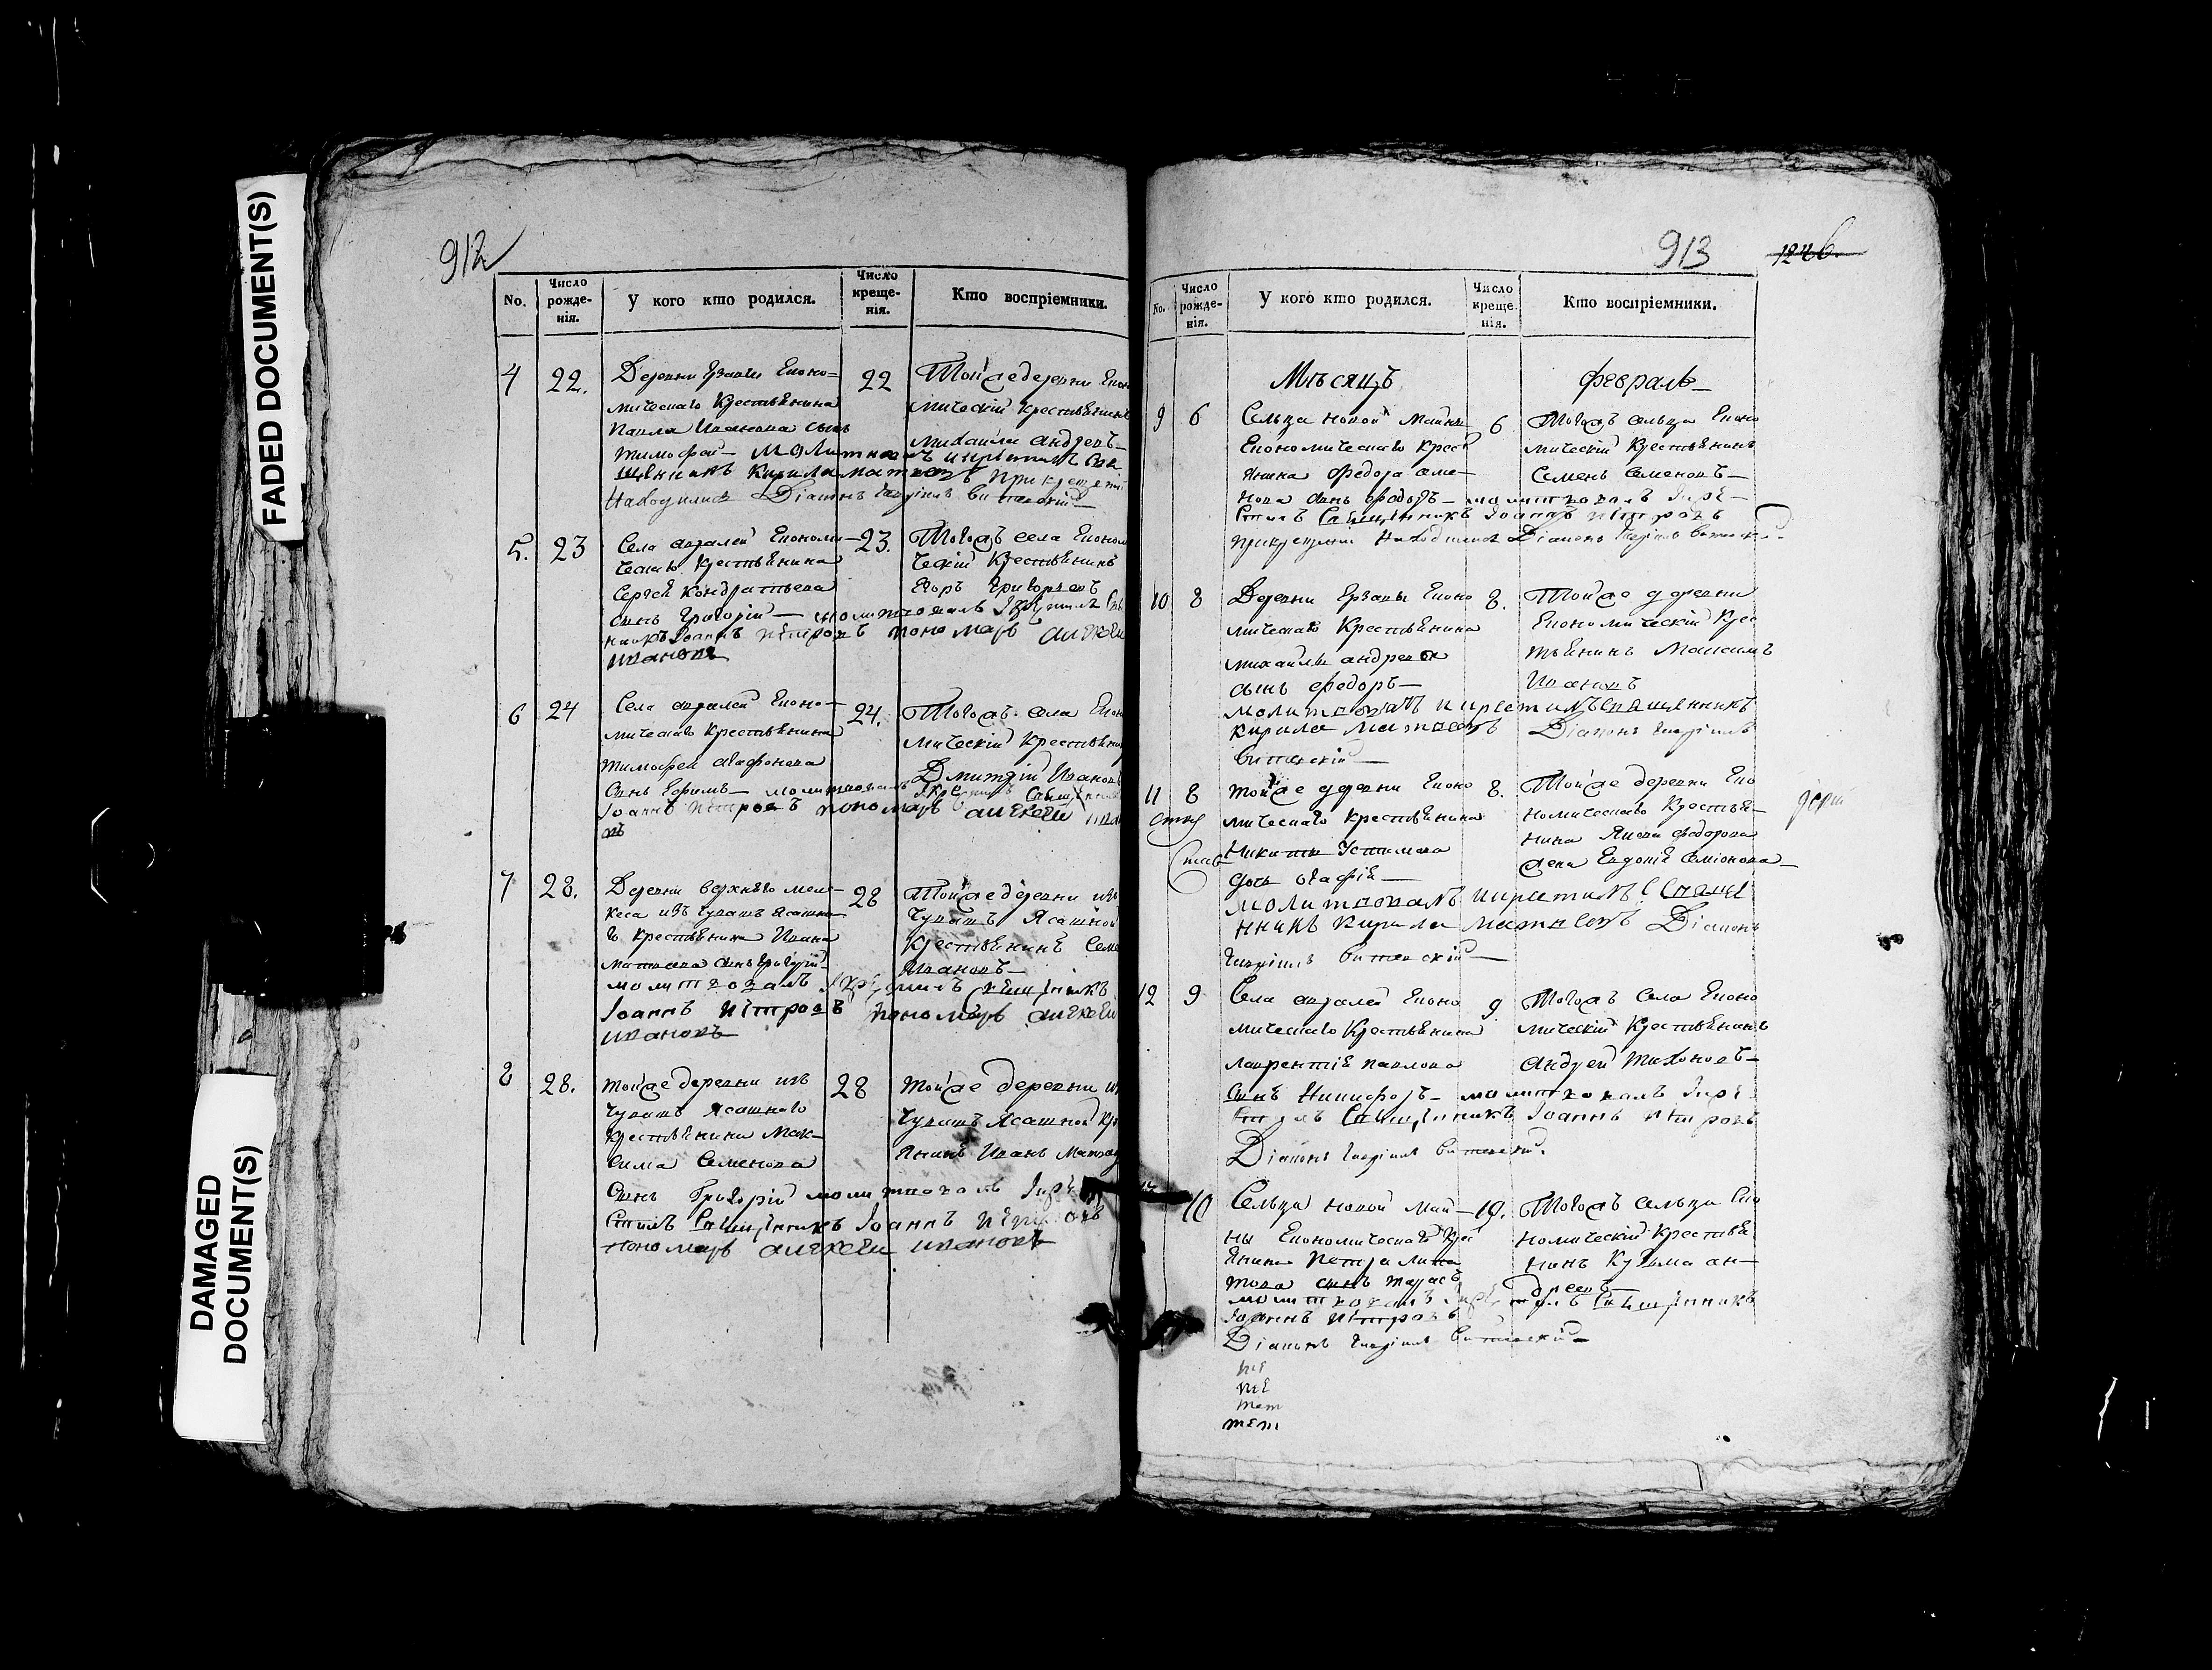 FADED DOCUMENT(S)
DAMAGED
DOCUMENT(S)
912
No.
Число
рожде-
нія.
У кого кто родился.
Число
креще-
нія.
Кто воспріемники.
4
22.
Деревни Ерзовки Еконо=
мическаго крестьянина
Павла Иванова сынъ
тимофей – молитвовалъ икрестилъ Свя
щенникъ Кирила матвеевъ прикрещеніи
Находился Діаконъ Гавріилъ витевскій
22
Тойже деревни Екон
мическій крестьянинъ
михаила андреевъ
5.
23
Села Економи–
ческаго крестьянина
Сергея Кондратьева
сынъ Григорій – молитвовалъ Ікрестилъ Свя
никъ Іоаннъ петровъ пономарь алексеи
ивановъ
23.
Тогожъ села Економ
ческій крестьянинъ
Егоръ Григорьевъ
6
24
Села Еконо–
мическаго крестьянина
тимофея агафонова
Сынъ Ефимъ – молитвовалъ Ікрестилъ Священник
Іоаннъ петровъ пономарь алексеи ива
въ
24.
Тогожъ села Екон
мическій крестьянин
Дмитрій Иванов
7
28.
Деревни верхняго меле–
кеса изъ чувашъ ясашна–
го крестьянина Ивана
матвеева сынъ григорій
молитвовалъ Ікрестилъ священникъ
Іоаннъ петровъ пономарь алексеи
ивановъ
28
Тойже деревни изъ
чувашъ Ясашной
крестьянинъ Семе
Ивановъ
8
28.
тойже деревни изъ
чувашъ ясашнаго
крестьянина Мак–
сима Семенова
Сынъ Григорій молитвовалъ Ікре
стилъ Священникъ Іоаннъ петровъ
пономарь алексеи ивановъ
28
тойже деревни из
чувашъ Ясашной кре
янинъ Иванъ Матвее
913
1246.
No.
Число
рожде-
нія.
У кого кто родился.
Число
креще
нія.
Кто воспріемники.
Мѣсяцъ
февраль
9
6
Сельца новой майны
Економическаго крест
янина Федора семе–
нова сынъ Федоръ – молитвовалъІкре–
стилъ Священникъ Іоаннъ петровъ
прикрещеніи Находился Діаконъ Гавріилъ витевскій
6.
Тогожъ сельца Еконо
мическій крестьянинъ
Семенъ Семеновъ –
10
8
Деревни Ерзовки Еконо
мическаго крестьянина
михаилы андреева
сынъ федоръ –
молитвовалъ икрестилъ Священникъ
кирила матвеевъ Діаконъ Гавріилъ
витевскій –
8.
Тойже деревни
Економическій крес
тьянинъ Максимъ
Ивановъ
11
8
тойже деревни Еконо
мическаго крестьянина
Никиты Устимова
дочь агафія –
молитвовалъ икрестилъ Священ
нникъ кирила матвеевъ Діаконъ
Гавріилъ витевскій –
8.
Тойже деревни Еко
номическаго крестья–
нина Якова федорова
жена Евдокія семіонова –
12
9
Села Еконо
мическаго крестьянина
лаврентія павлова
Сынъ Никифоръ – молитвовалъ Ікре
стилъ Священникъ Іоаннъ петровъ
Діаконъ Гавріилъ витевскій.
9
Тогожъ села Еконо
мическій крестьянинъ
Андрей Тихоновъ –
10
Сельца новой май–
ны Економическаго крес
янина петра
това сынъ тарасъ
молитвовалъ Ікрестилъ Священникъ
Іоаннъ петровъ
Діаконъ Гавріилъ витевскій –
10.
Тогожъ сельца Еко
номическій крестья
нинъ Кузьма ан–
дреевъ